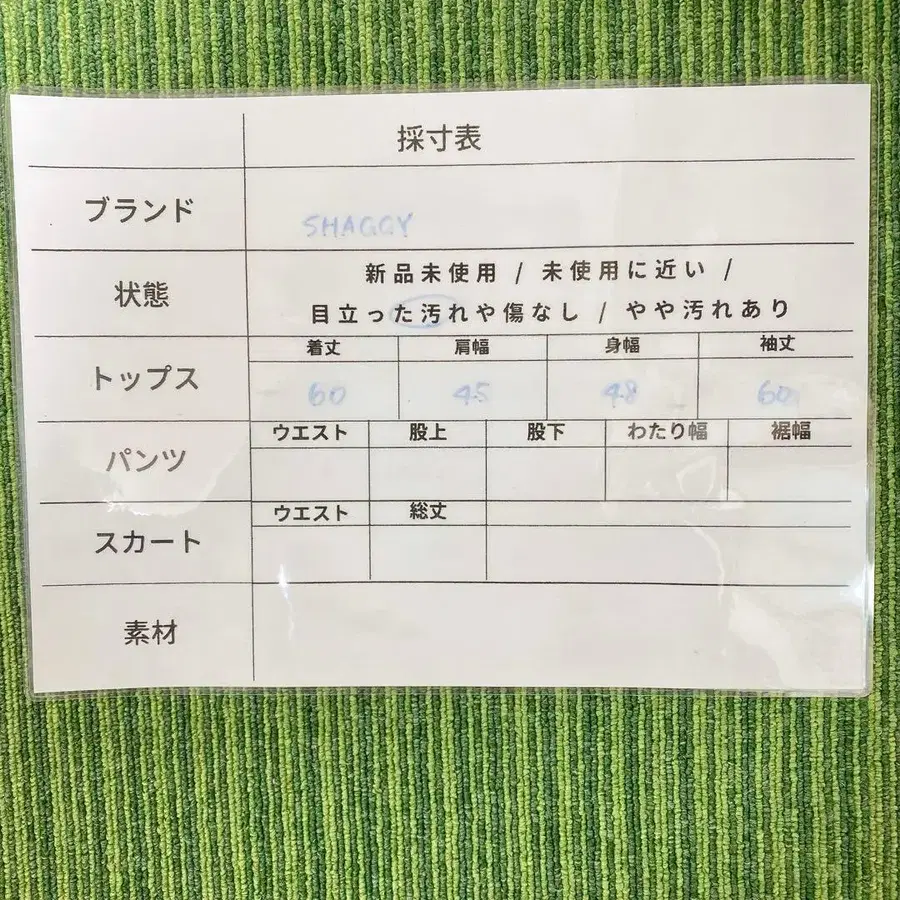 採寸表
ブランド SHAGGY
状態 新品未使用 / 未使用に近い /
目立った汚れや傷なし / やや汚れあり
トップス 着丈 肩幅 身幅 袖丈
60 45 48 60
パンツ ウエスト 股上 股下 わたり幅 裾幅
スカート ウエスト 総丈
素材